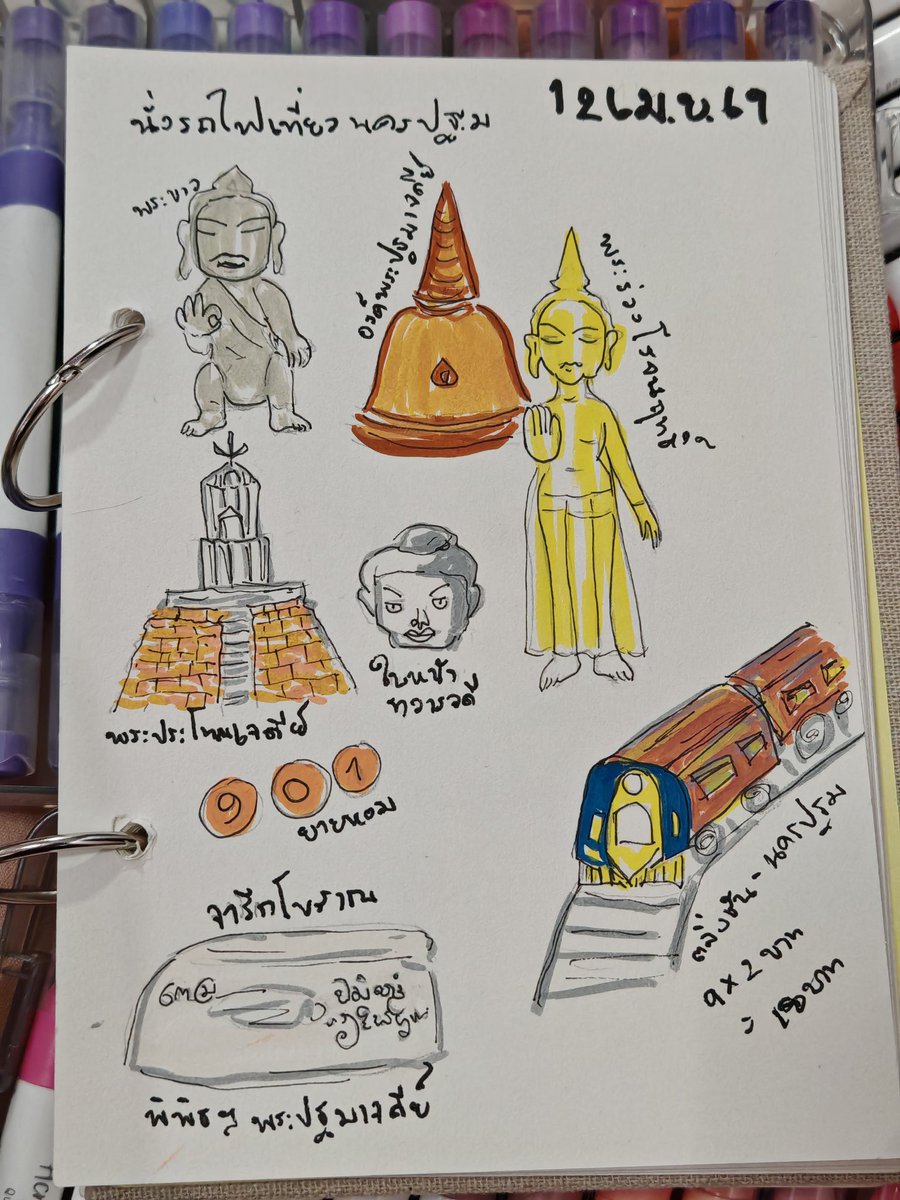 นั่งรถไฟเที่ยวนครปฐม
12 เม.ย. 69
พระขาว
องค์พระปฐมเจดีย์
พระร่วงโรจนฤทธิ์
พระประโทณเจดีย์
ใบหน้า
ทวารวดี
901
ยายหอม
จารึกโบราณ
พิพิธฯ พระปฐมเจดีย์
ตลิ่งชัน - นครปฐม
9 x 2 บาท
= 18 บาท